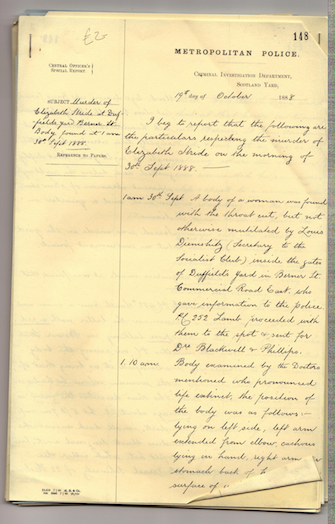 £2
148
METROPOLITAN POLICE.
CENTRAL OFFICER'S
SPECIAL REPORT
CRIMINAL INVESTIGATION DEPARTMENT,
SCOTLAND YARD,
19th day of October 1888
SUBJECT Murder of
Elizabeth Stride at Duf-
fields yard Berner St.
Body found at 1 am
30th Sept 1888
REFERENCE TO PAPERS
I beg to report that the following are
the particulars respecting the murder of
Elizabeth Stride on the morning of
30th Sept 1888.
1 am 30th Sept A body of a woman was found
with the throat cut, but not
otherwise mutilated by Louis
Diemshitz (Secretary to the
Socialist Club) inside the gates
of Duffields Yard in Berner St.
Commercial Road East, who
gave information to the Police
P.C. 252 Lamb proceeded with
them to the spot & sent for
Drs Blackwell & Phillips.
1.10 am Body examined by the Doctors
mentioned who pronounced
life extinct, the position of
the body was as follows:-
lying on left side, left arm
extended from elbow, cachous
lying in hand, right arm
stomach back of
surface of